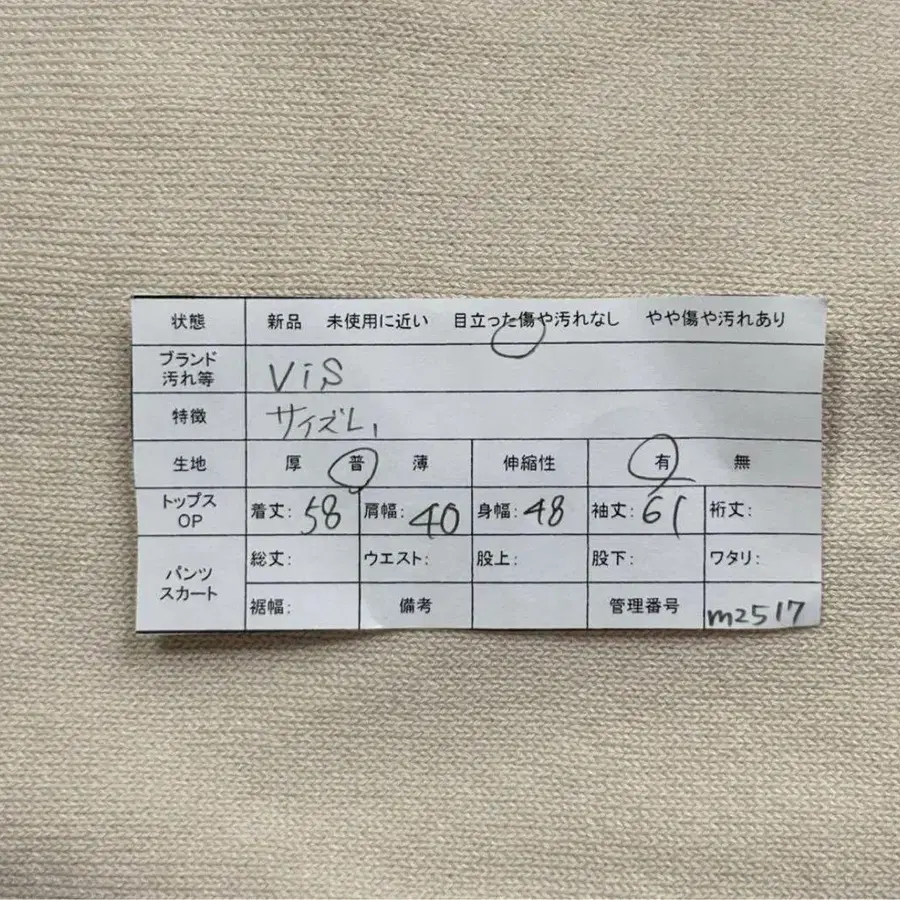 状態 新品 未使用に近い 目立った傷や汚れなし やや傷や汚れあり
ブランド
汚れ等 ViS
特徴 サイズL
生地 厚 普 薄 伸縮性 有 無
トップス
OP 着丈: 58 肩幅: 40 身幅: 48 袖丈: 61 裄丈:
パンツ
スカート
総丈: ウエスト: 股上: 股下: ワタリ:
裾幅: 備考 管理番号 m2517